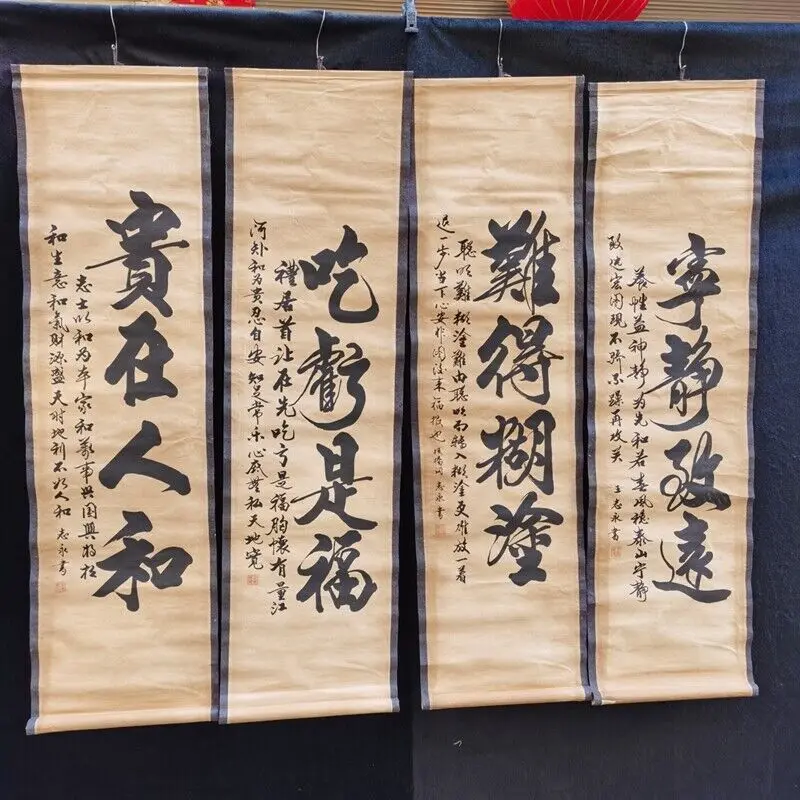 寧靜致遠
養性益神靜为先和若春风穩泰山宁静
致远宏图现不骄不躁再攻关
王志永書
難得糊塗
聪明難糊塗難由聪明而轉入糊塗更难放一着
退一步当下心安非图後来福报也 志永書
吃虧是福
禮居首让在先吃亏是福胸懷有量江
河 和为贵忍自安知足常乐心底無私天地寬
貴在人和
志士以和为本家和万事兴国興将相
和生意和氣財源盛天时地利不如人和 志永書